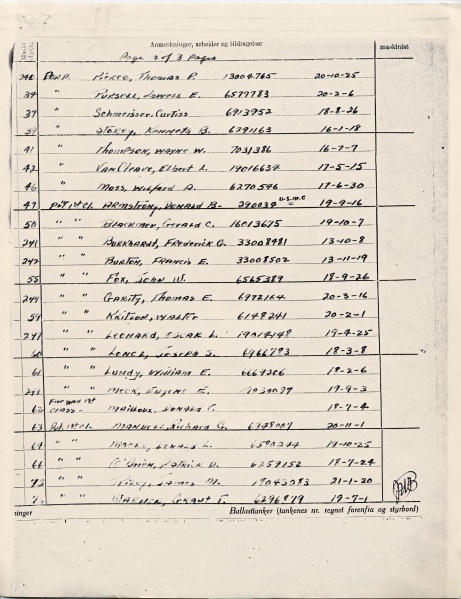 Anmerkninger, arbeider og tildragelser maskinist
Page 2 of 3 Pages
Corp. Pierce, Thomas P. 13004765 20-10-25
34 " Pursell, Lowell E. 6577783 20-2-6
37 " Schmeisser, Curtiss 6913952 18-8-26
39 " Storey, Kenneth B. 6291163 16-1-18
41 " Thompson, Wayne W. 7031386 16-7-7
42 " VanCleave, Elbert L. 19016634 17-5-15
46 " Moss, Wilford A. 6270546 17-6-30
47 Pvt. 1st Cl. Armstrong, Donald B- 290039 U.S.M.C 19-9-16
50 " " Blackmer, Gerald C. 16013675 19-10-7
241 " " Burkhardt, Frederick G. 33008481 13-10-8
242 " " Burton, Francis E. 33008502 13-11-19
55 " " Fox, John W. 6565389 18-9-26
244 " " Garity, Thomas E. 6972164 20-3-16
59 " " Knitson, Walter 6148241 20-2-1
247 " " Leonard, Oscar L. 19014148 19-4-25
60 " " Lenck, Joseph S. 6966783 18-3-8
61 " " Lundy, William E. 6669206 18-2-6
" " Meek, Eugene E. 19030077 19-9-3
62 Fireman 1st Class - Mailloux, Donald C. 18-7-4
63 Pvt. 1st Cl. Manuell, Richard G. 20-11-1
64 " " 19-10-25
66 " " O'Brien, Patrick D. 6259152 18-7-24
" " James M. 19043083 21-1-20
" " Warner, Grant T. 6296879 19-7-1
ninger Ballasttanker (tankenes nr. regnet forenfra og styrbord)